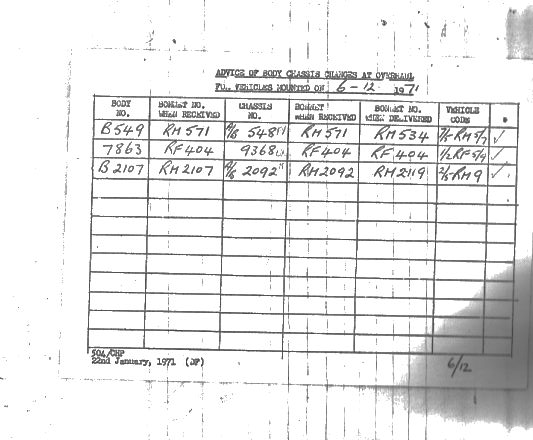 ADVICE OF BODY CHASSIS CHANGES AT OVERHAUL
FOR VEHICLES MOUNTED ON 6-12 1971
BODY NO. BONNET NO. WHEN RECEIVED CHASSIS NO. BONNET WHEN RECEIVED BONNET NO. WHEN DELIVERED VEHICLE CODE
B549 RM571 548 RM571 RM534 RM5/7 ✓
7863 RF404 9368 RF404 RF404 1/2RF5/4 ✓
B2107 RM2107 2092 RM2092 RM2119 RM9 ✓
504/CHP
22nd January, 1971 (DF)
6/12